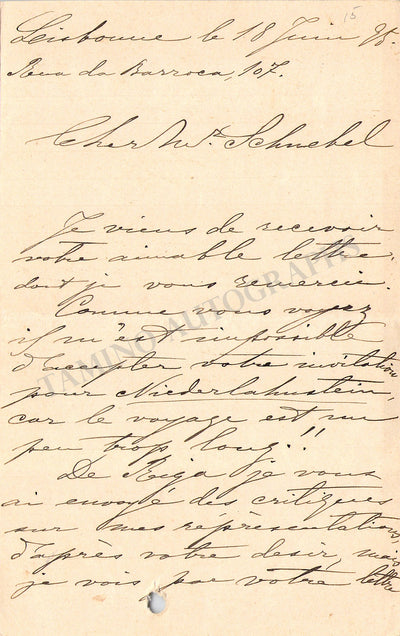 15
Lisbonne le 18 Juin 95.
Rua da Barroca, 107.
Cher Mr. Schnebel
Je viens de recevoir
votre aimable lettre,
dont je vous remercie.
Comme vous voyez
il m'est impossible
d'accepter votre invitation
pour Niederlahnstein,
car le voyage est un
peu trop long!!
De Riga je vous
ai envoyé des critiques
sur mes représentations,
d'après votre desir, mais
je vois par votre lettre
TAMINO AUTOGRAPHS